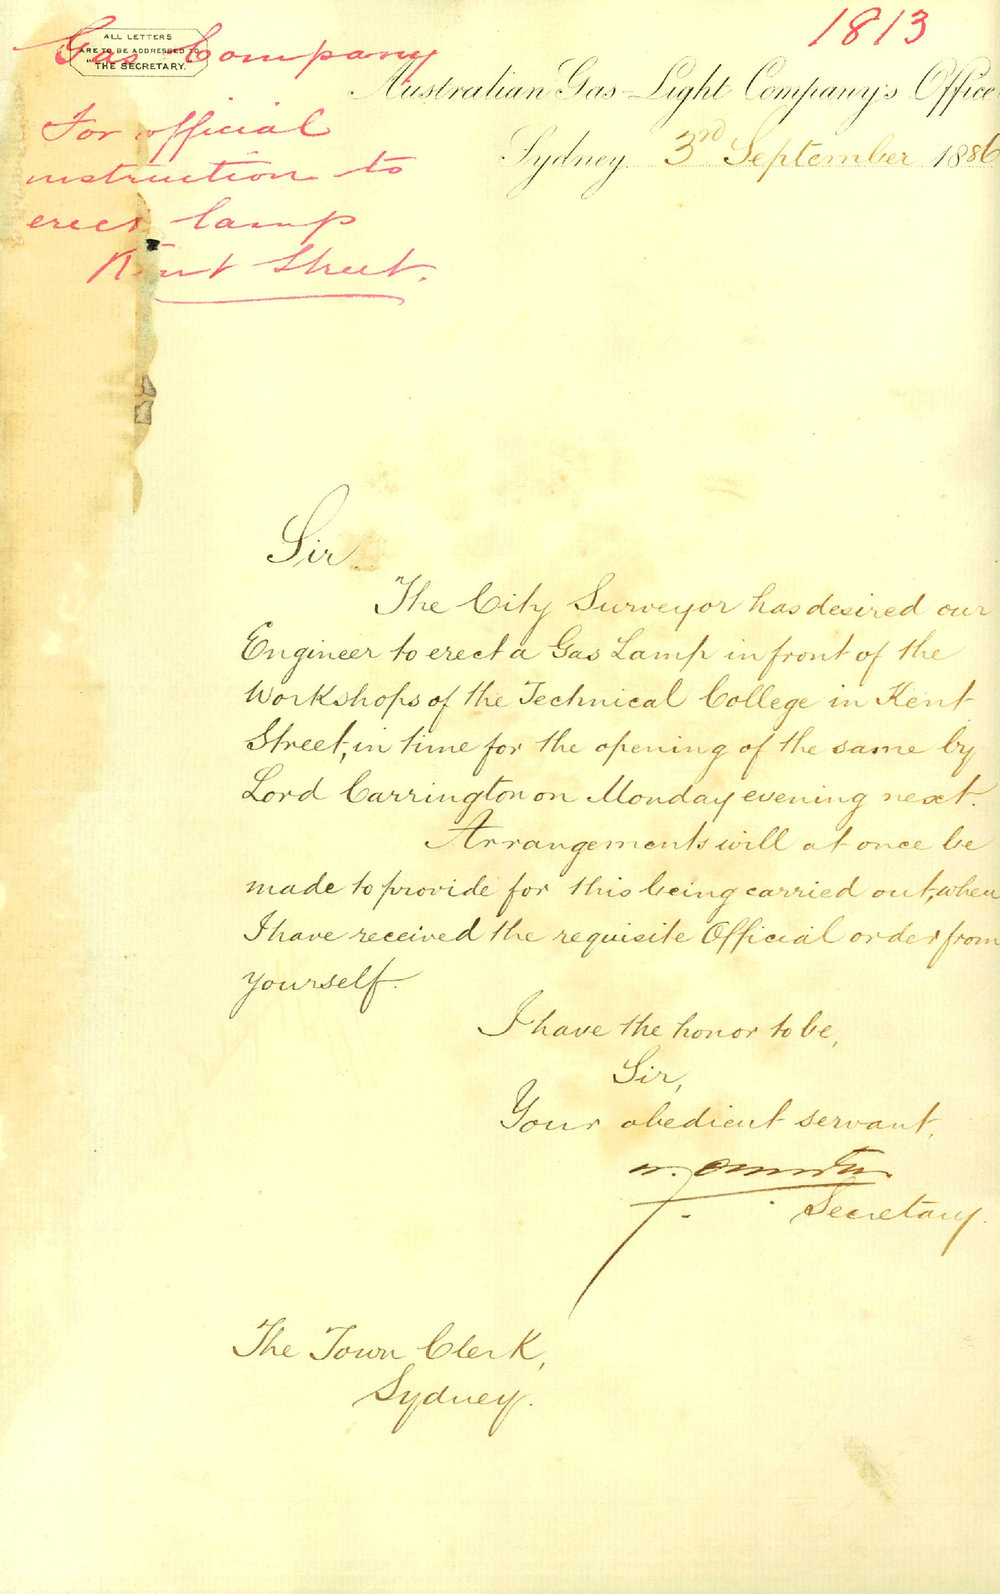 1813
ALL LETTERS
ARE TO BE ADDRESSED TO
THE SECRETARY.
Gas Company
For official
instruction to
erect lamp
Kent Street.
Australian Gas-Light Company's Office
Sydney 3rd September 1886
Sir
The City Surveyor has desired our
Engineer to erect a Gas Lamp in front of the
Workshops of the Technical College in Kent
Street, in time for the opening of the same by
Lord Carrington on Monday evening next.
Arrangements will at once be
made to provide for this being carried out, when
I have received the requisite Official order from
yourself.
I have the honor to be,
Sir,
Your obedient servant,
Secretary.
The Town Clerk,
Sydney.